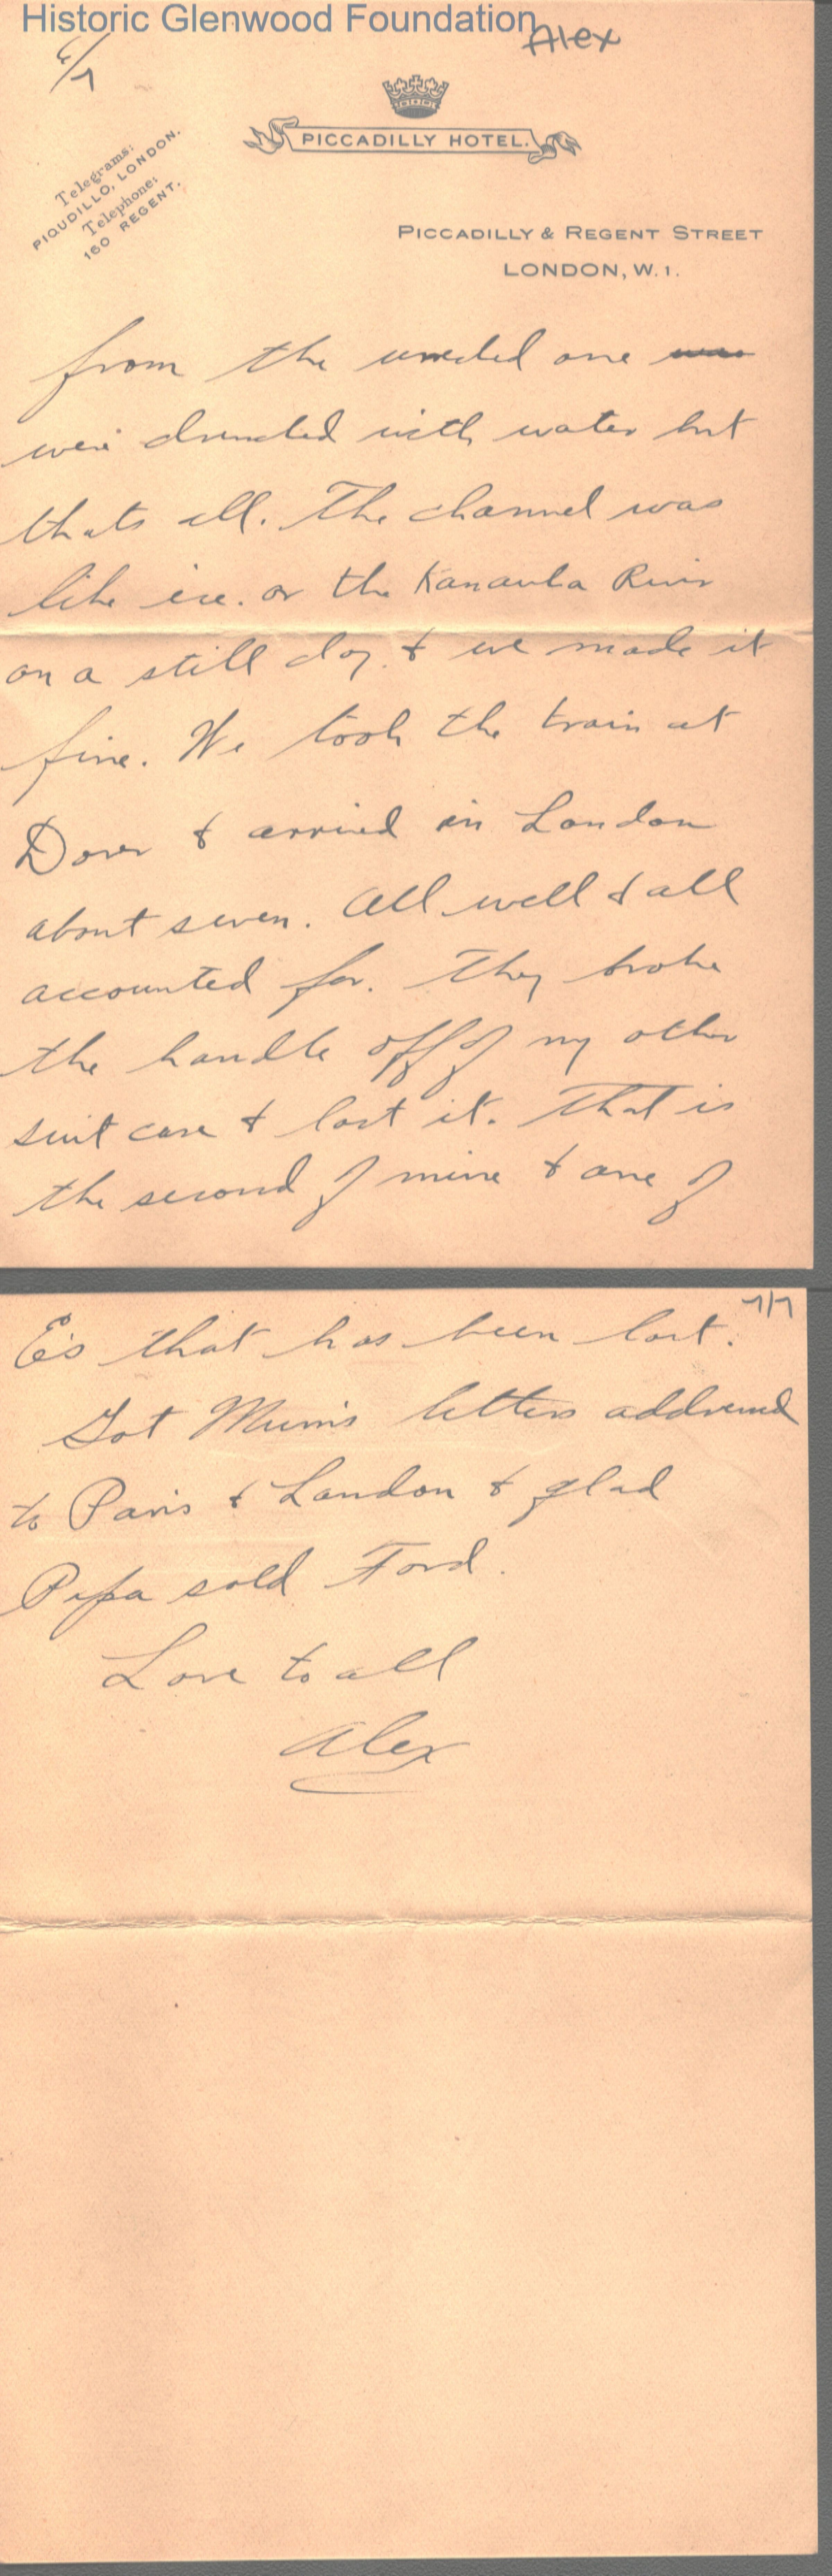 Historic Glenwood Foundation
Alex
6/7
PICCADILLY HOTEL.
Telegrams:
PIQUDILLO, LONDON.
Telephone:
160 REGENT.
PICCADILLY & REGENT STREET
LONDON, W.1.
from the wrecked one
were drenched with water but
thats all. The channel was
like ice. or the Kanawha River
on a still day. & we made it
fine. We took the train at
Dover & arrived in London
about seven. All well & all
accounted for. They broke
the handle off of my other
suit case & lost it. That is
the second of mine & one of
7/7
E's that has been lost.
Got Mum's letters addressed
to Paris & London & glad
Papa sold Ford.
Love to all
Alex